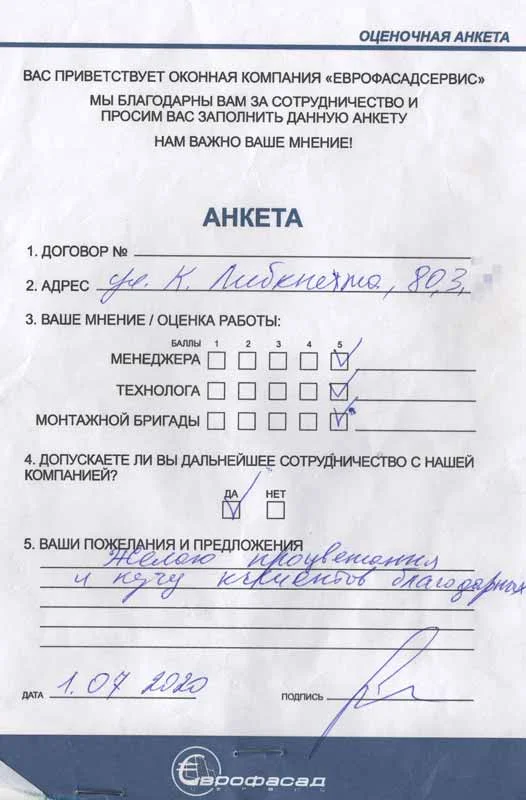 ОЦЕНОЧНАЯ АНКЕТА
ВАС ПРИВЕТСТВУЕТ ОКОННАЯ КОМПАНИЯ «ЕВРОФАСАДСЕРВИС»
МЫ БЛАГОДАРНЫ ВАМ ЗА СОТРУДНИЧЕСТВО И
ПРОСИМ ВАС ЗАПОЛНИТЬ ДАННУЮ АНКЕТУ
НАМ ВАЖНО ВАШЕ МНЕНИЕ!
АНКЕТА
1. ДОГОВОР №
2. АДРЕС ул. К. Либкнехта, 80,3,
3. ВАШЕ МНЕНИЕ / ОЦЕНКА РАБОТЫ:
БАЛЛЫ 1 2 3 4 5
МЕНЕДЖЕРА
ТЕХНОЛОГА
МОНТАЖНОЙ БРИГАДЫ
4. ДОПУСКАЕТЕ ЛИ ВЫ ДАЛЬНЕЙШЕЕ СОТРУДНИЧЕСТВО С НАШЕЙ
КОМПАНИЕЙ?
ДА НЕТ
5. ВАШИ ПОЖЕЛАНИЯ И ПРЕДЛОЖЕНИЯ
Желаю процветания
и кучу клиентов благодарных
ДАТА 1.07 2020 ПОДПИСЬ
Еврофасад
СЕРВИС